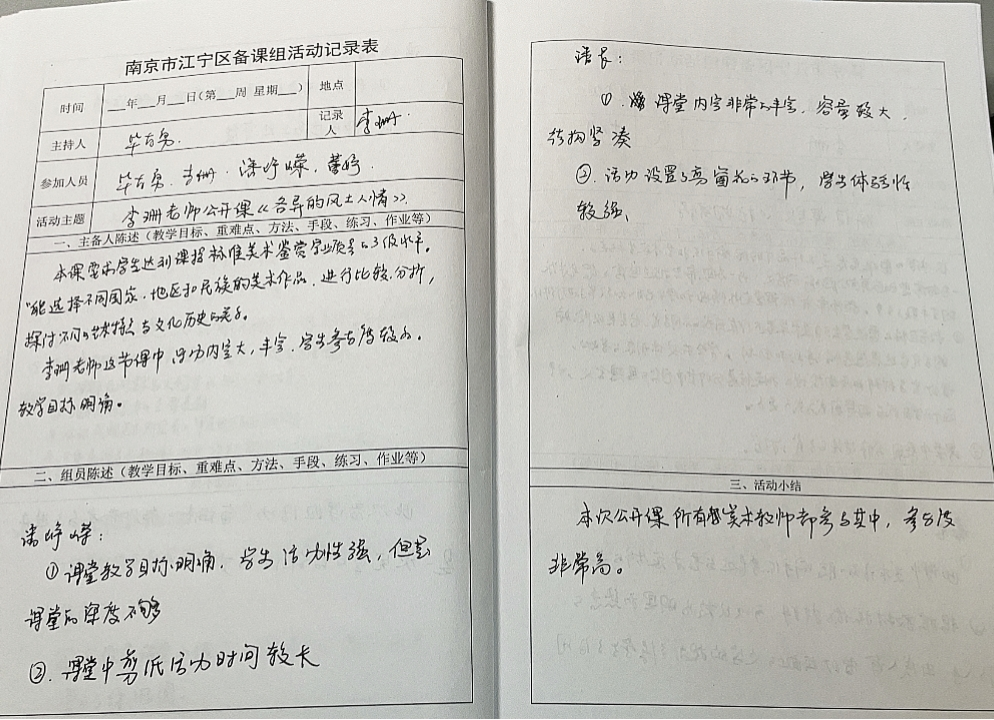 南京市江宁区备课组活动记录表
时间 年 月 日（第 周 星期 ） 地点
主持人 记录人 李珊
参加人员 李珊
活动主题 李珊老师公开课《各异的风土人情》
一、主备人陈述（教学目标、重难点、方法、手段、练习、作业等）
本课要求学生达到课程标准美术鉴赏学业质量的3级水平。
"能选择不同国家、地区和民族的美术作品，进行比较、分析，
探讨不同的艺术特点与文化历史的关系。
李珊老师这节课中活动内容大，丰富，学生参与度较高。
教学目标明确。
二、组员陈述（教学目标、重难点、方法、手段、练习、作业等）
①课堂教学目标明确，学生活动性强，但是
课堂的深度不够
②.课堂中剪纸活动时间较长
①.课堂内容非常的丰富，容量较大，
结构紧凑
②.活动设置了剪窗花的环节，学生体验性
较强、
三、活动小结
本次公开课所有美术教师都参与其中，参与度
非常高。